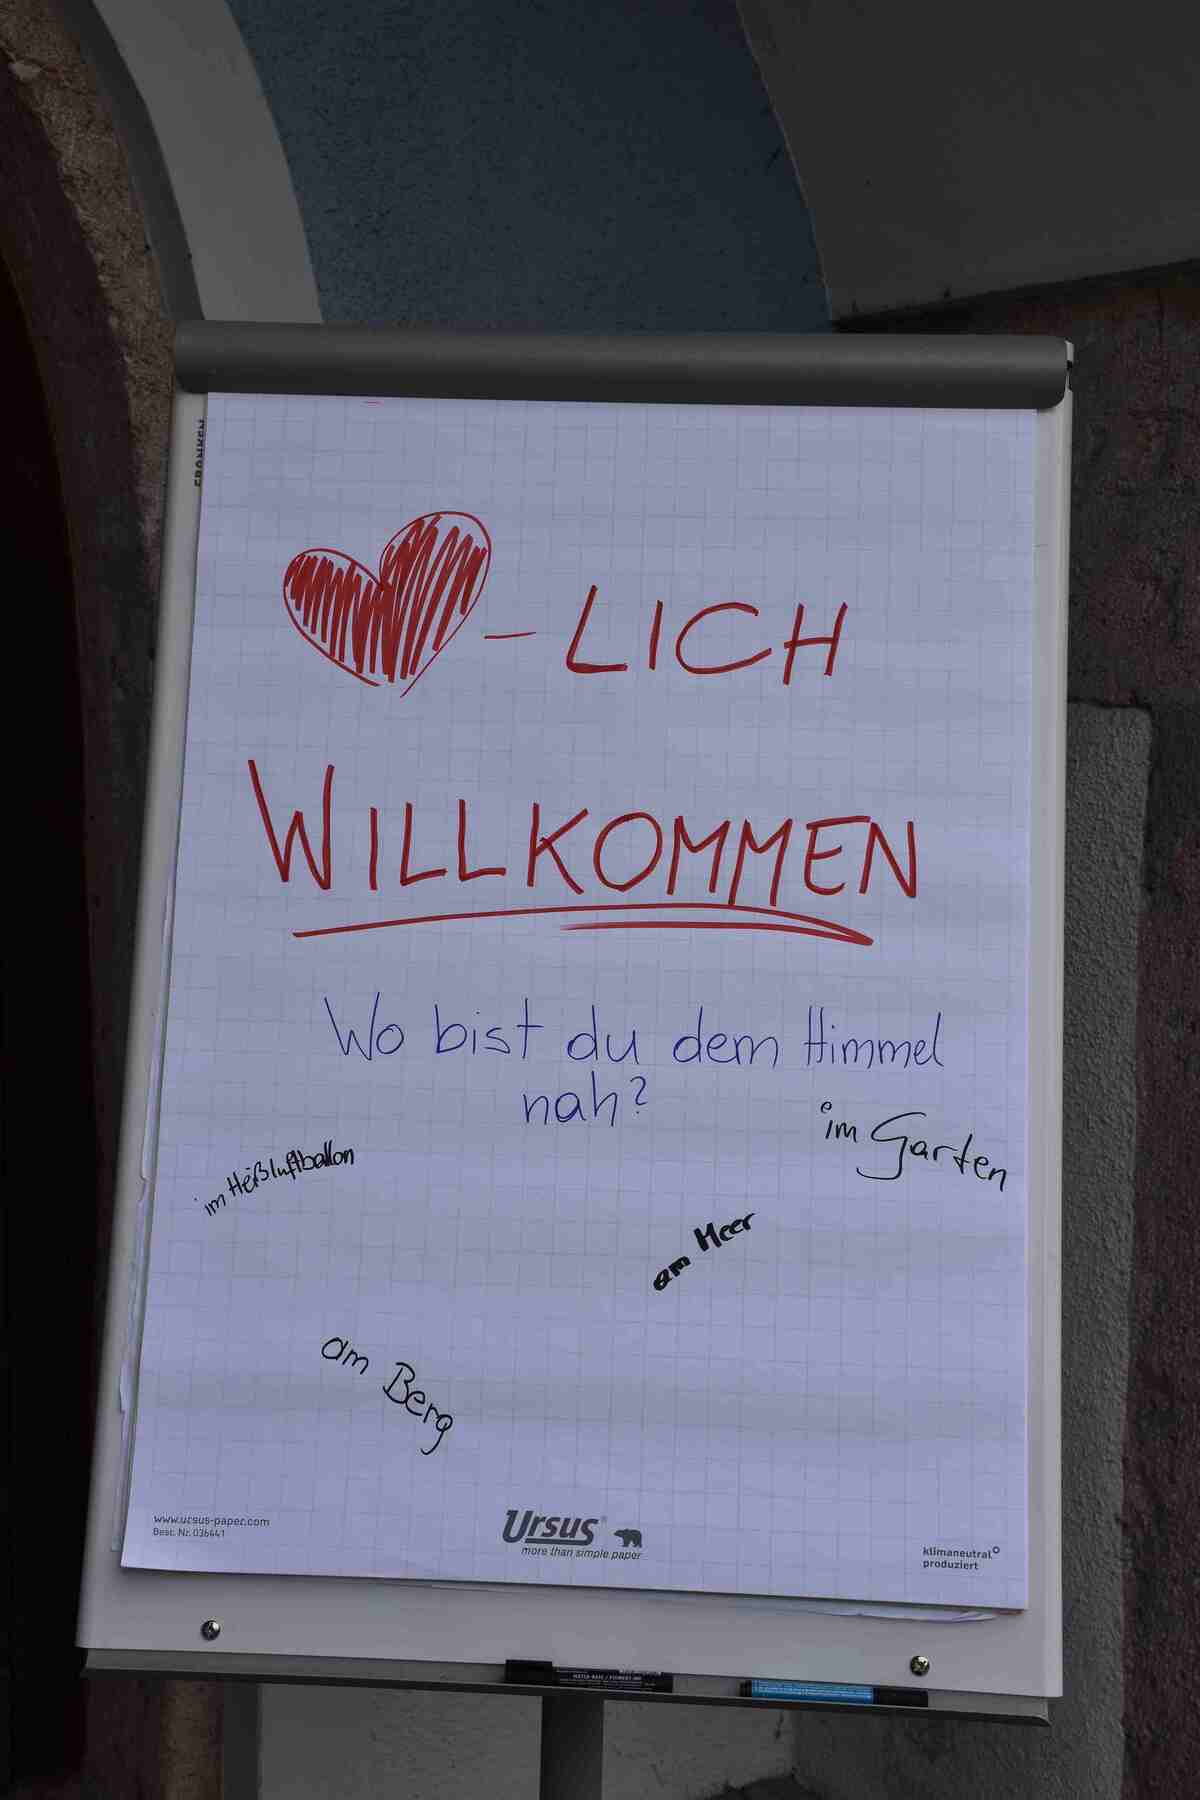 FRANKEN
-LICH
WILLKOMMEN
Wo bist du dem Himmel
nah?
im Garten
im Heißluftballon
am Meer
am Berg
www.ursus-paper.com
Best. Nr. 036441
Ursus®
more than simple paper
klimaneutral
produziert